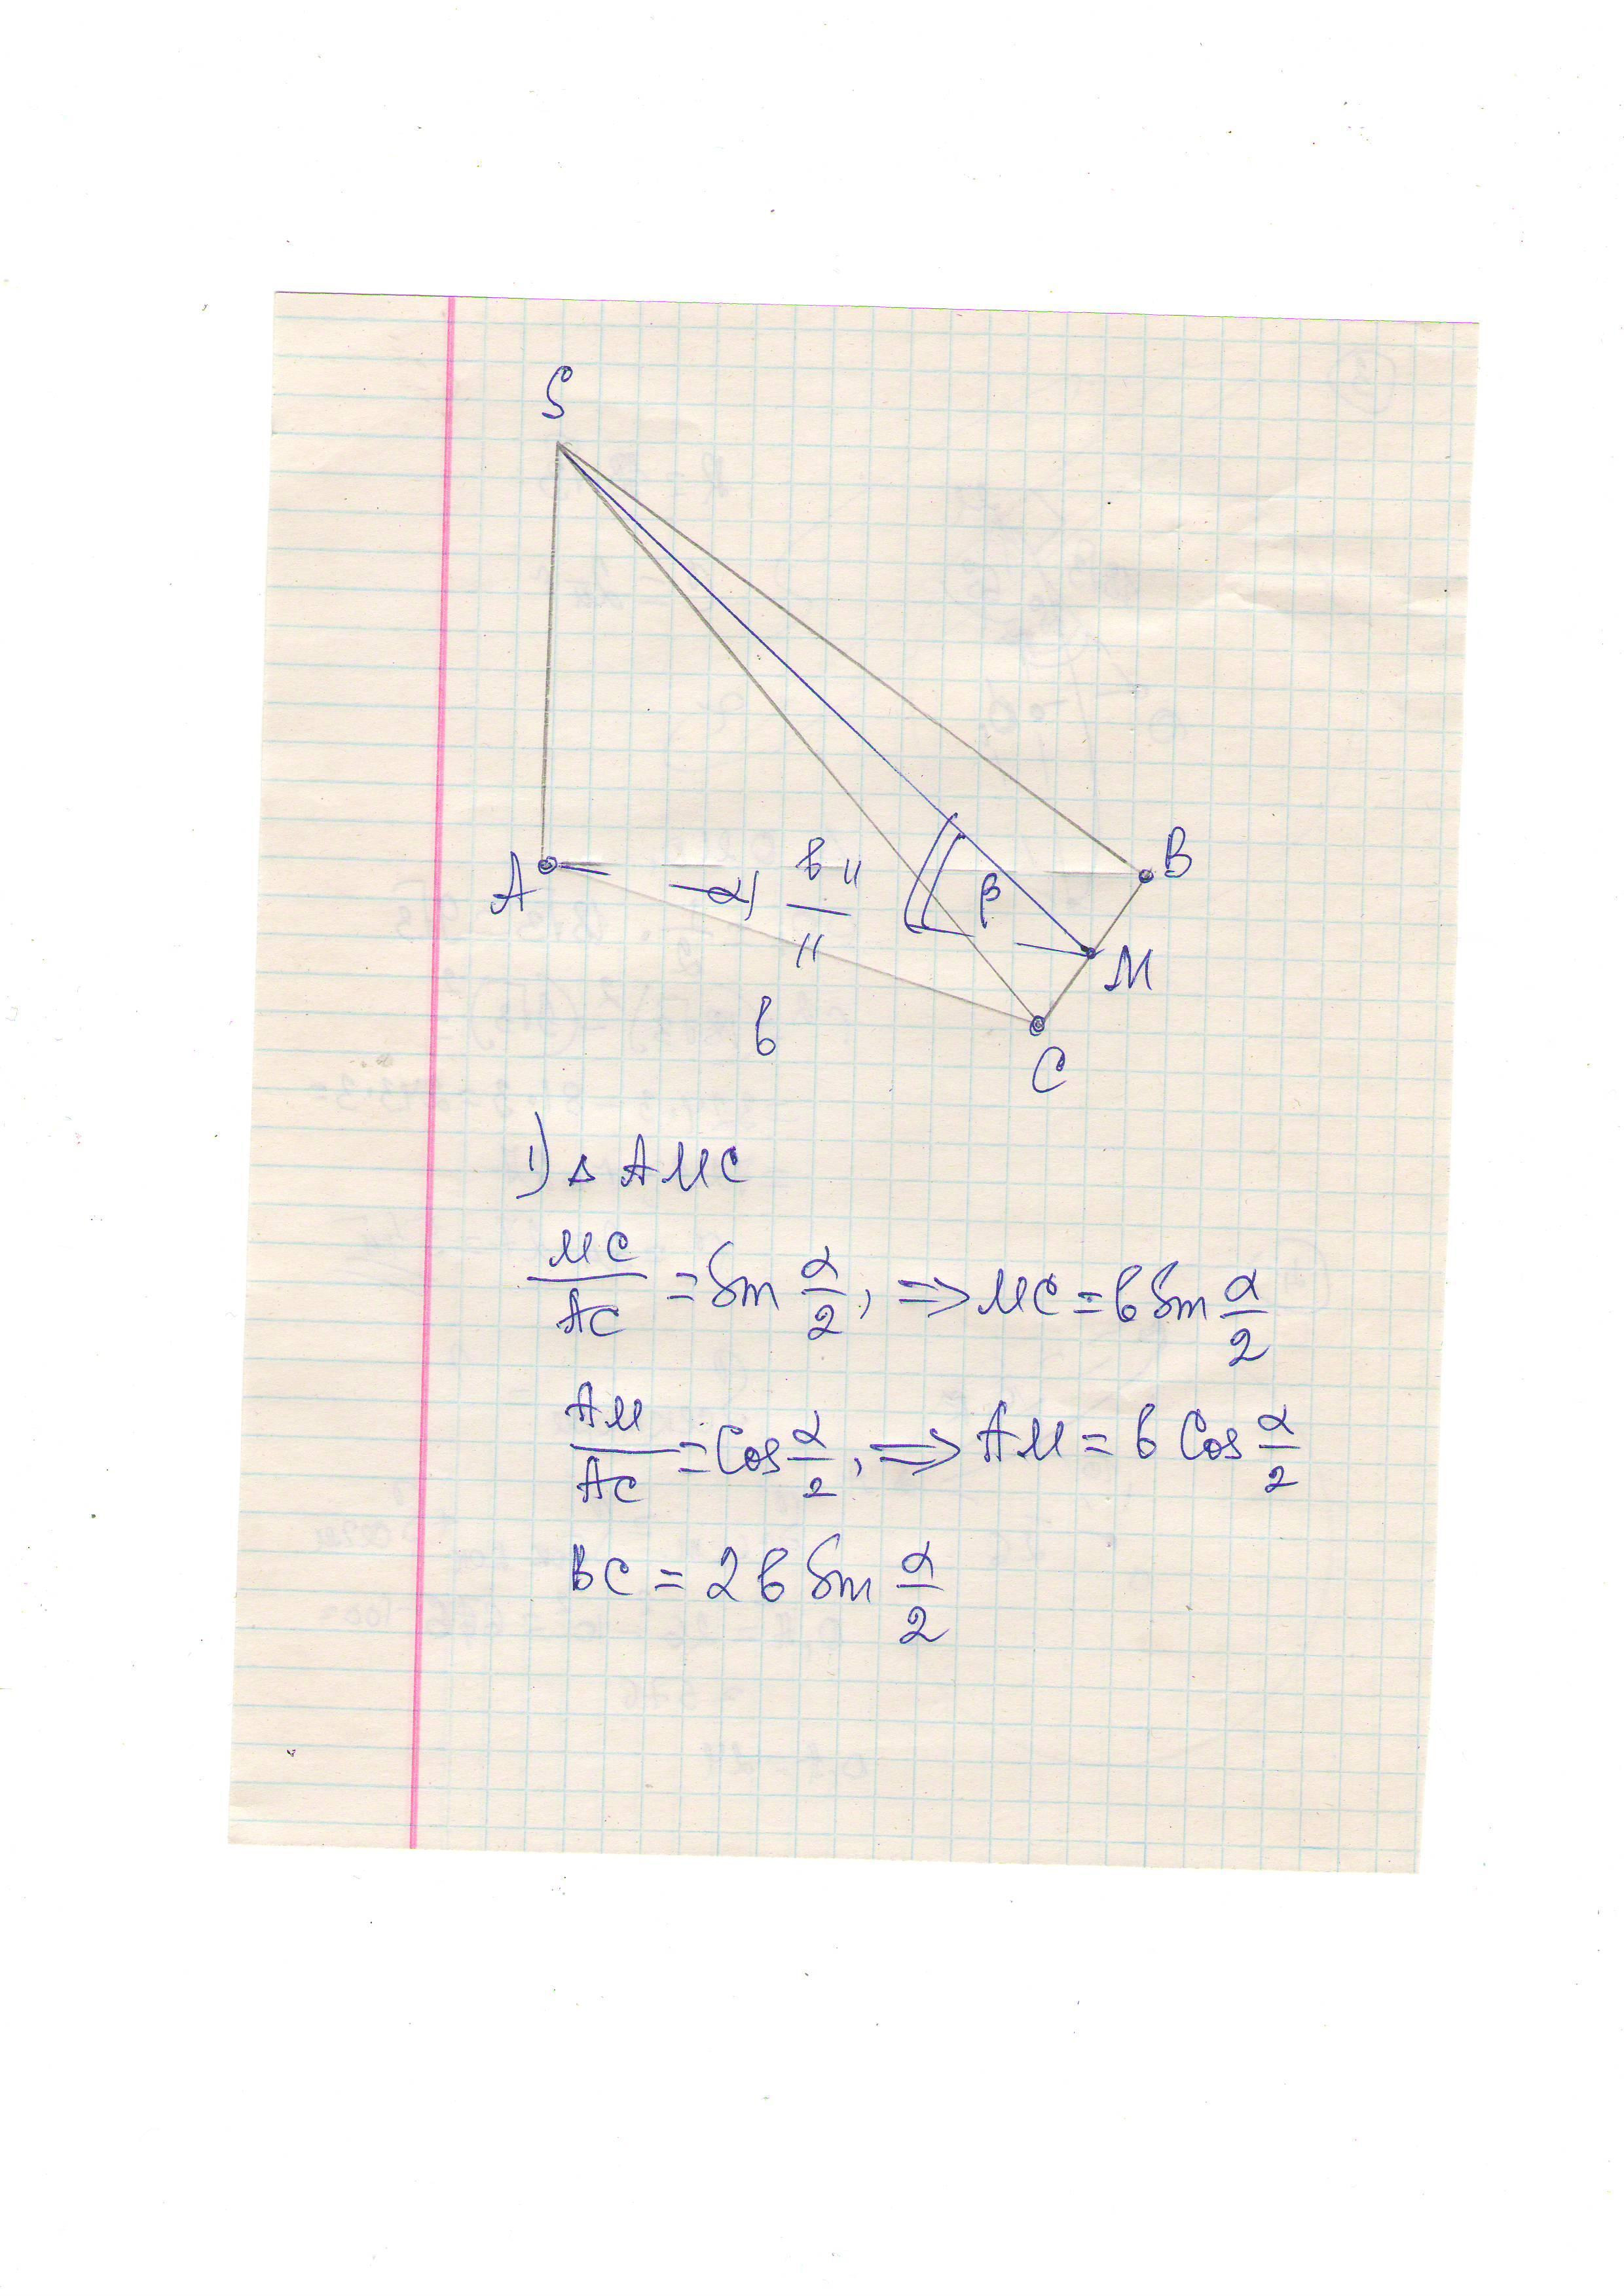 S
A
α
в
β
B
M
в
C
1) Δ AMC
MC/AC = Sin α/2, => MC = в Sin α/2
AM/AC = Cos α/2, => AM = в Cos α/2
BC = 2в Sin α/2